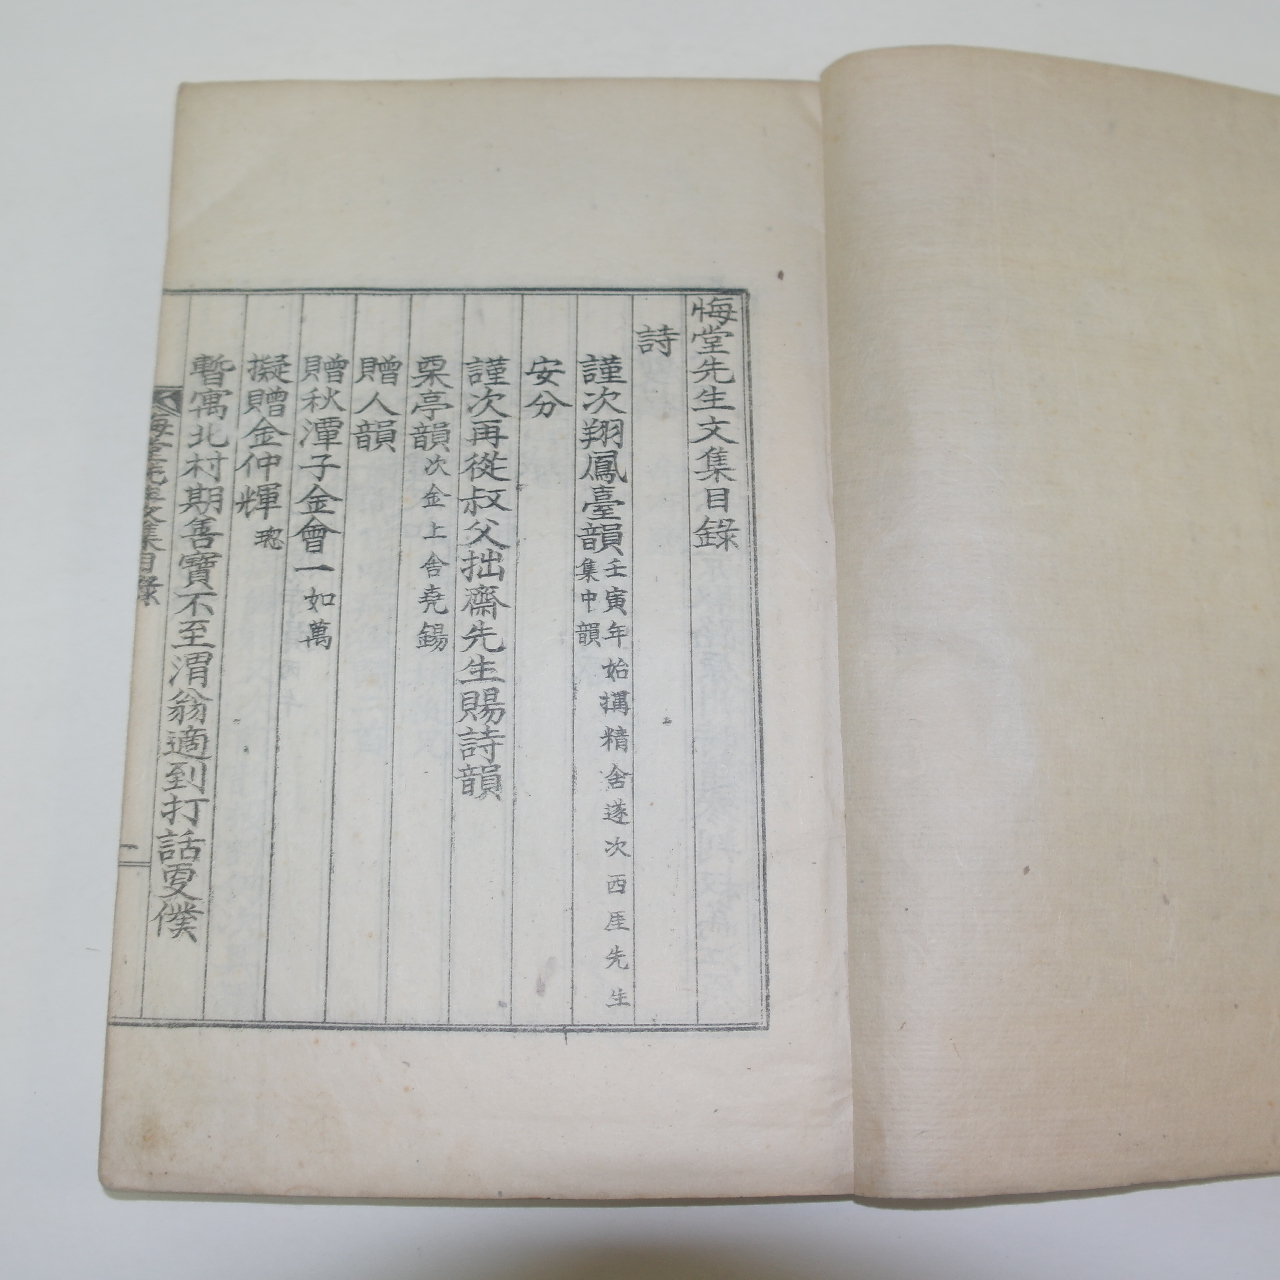 悔堂先生文集目錄
詩
謹次翔鳳臺韻 壬寅年始搆精舍遂次西厓先生集中韻
安分
謹次再從叔父拙齋先生賜詩韻
栗亭韻 次金上舍堯錫
贈人韻
贈秋潭子金會一 如萬
擬贈金仲輝
暫寓北村期善寶不至渭翁適到打話更僕
悔堂先生文集目錄
一